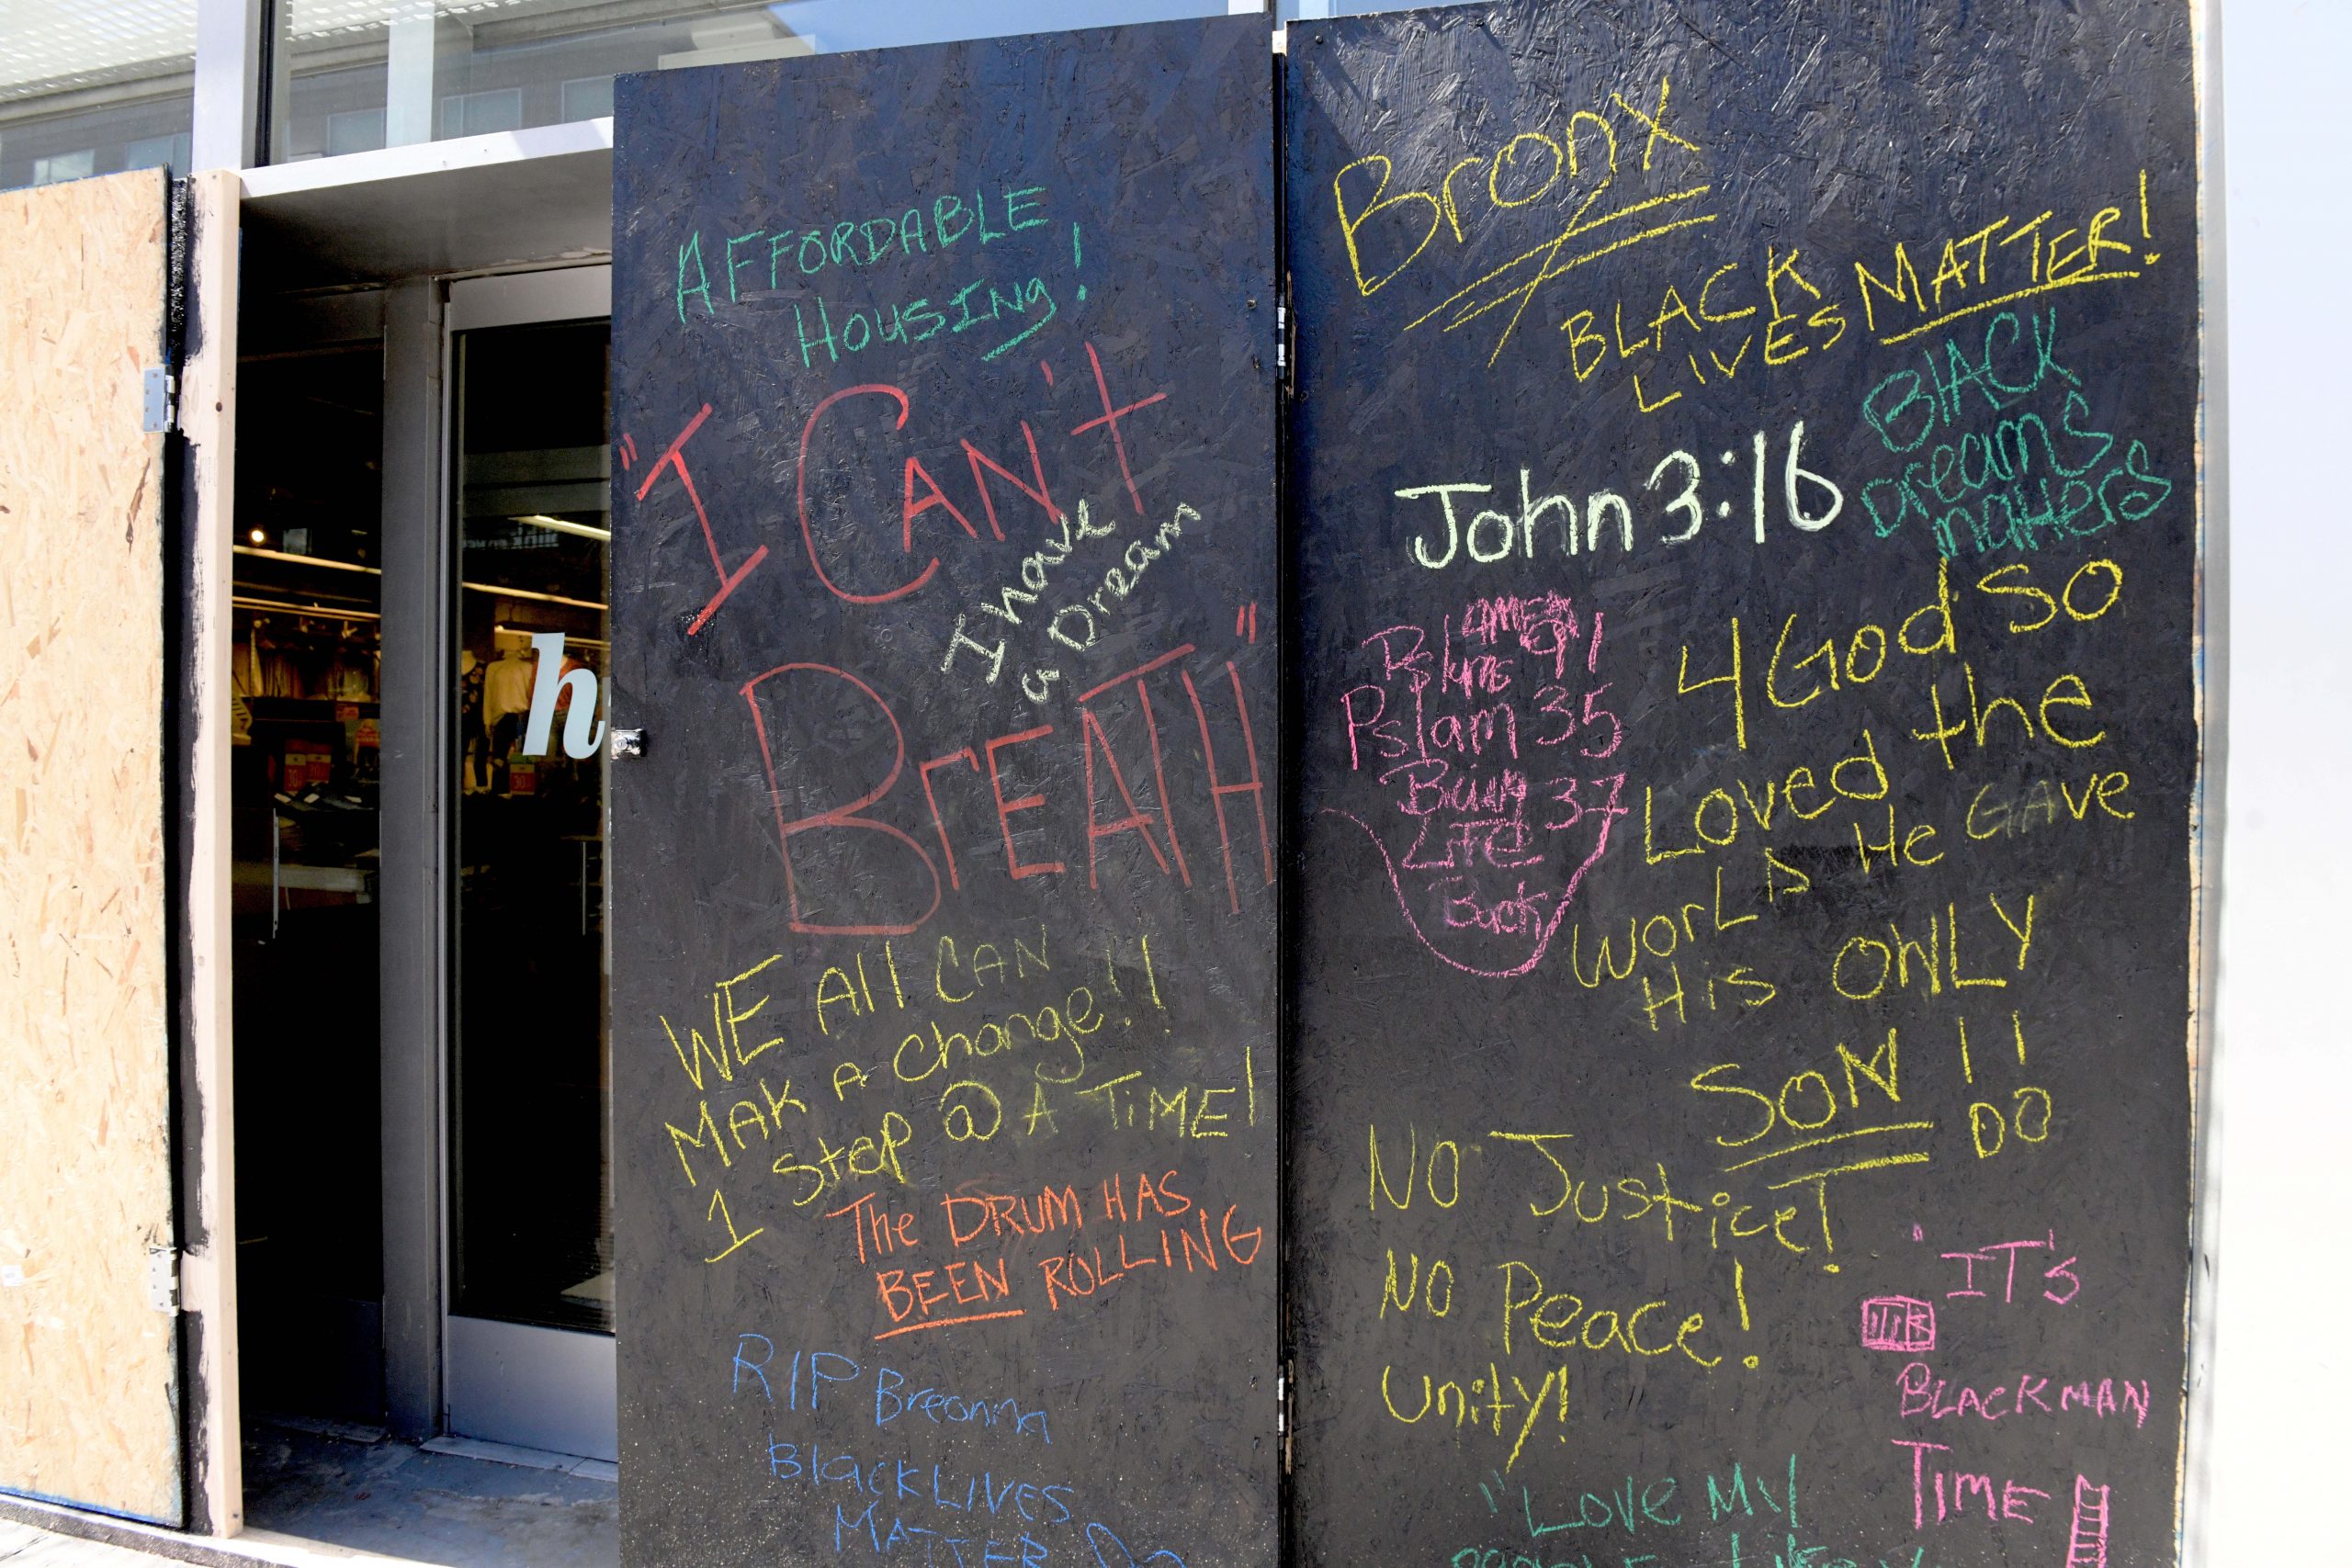 h
AFFORDABLE
HOUSING!
"I CAN't
I have
a Dream
BrEATH"
WE All CAN
MAK A change!!
1 Step @ A TiME!
The DRUM HAS
BEEN ROLLING
RIP Breonna
Black LIVES
MATTER
Bronx
BLACK
LIVES MATTER!
BlACK
Dreams
matters
John 3:16
AMEN
91
Pslam 35
37
Life
Back
4 God so
Loved the
WorLD He GAve
His ONLY
SON!!
DO
NO Justice!
NO Peace!
Unity!
"IT's
BLACKMAN
TIME
"Love My